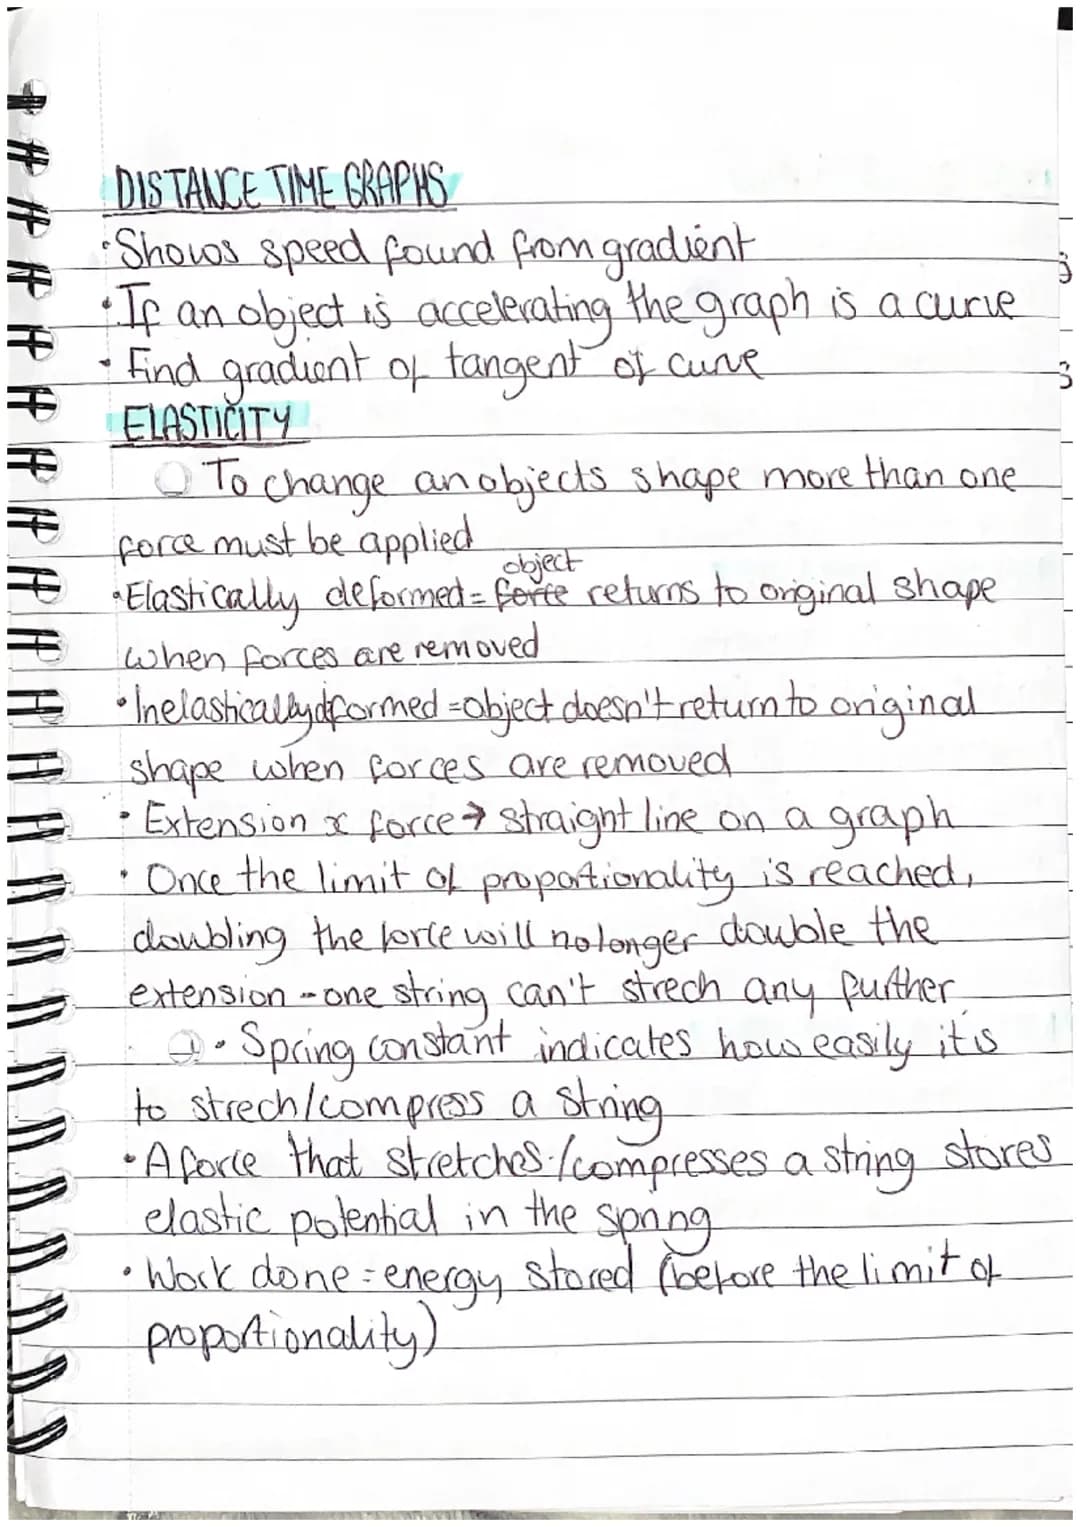 DISTANCE TIME GRAPHS
• Shows speed found from gradient
• If an object is accelerating the graph is a curve
• Find gradient of tangent of curve
ELASTICITY
To change an objects shape more than one
force must be applied
object
• Elastically deformed = force returns to original shape
when forces are removed
• Inelastically dformed = object doesn't return to original
shape when forces are removed
• Extension x force → straight line on a graph
• Once the limit of proportionality is reached,
doubling the force will no longer double the
extension - one string can't strech any further
• Spring constant indicates how easily it is
to strech/compress a string
• A force that stretches/compresses a string stores
elastic potential in the spring
• Work done = energy stored (before the limit of
proportionality)